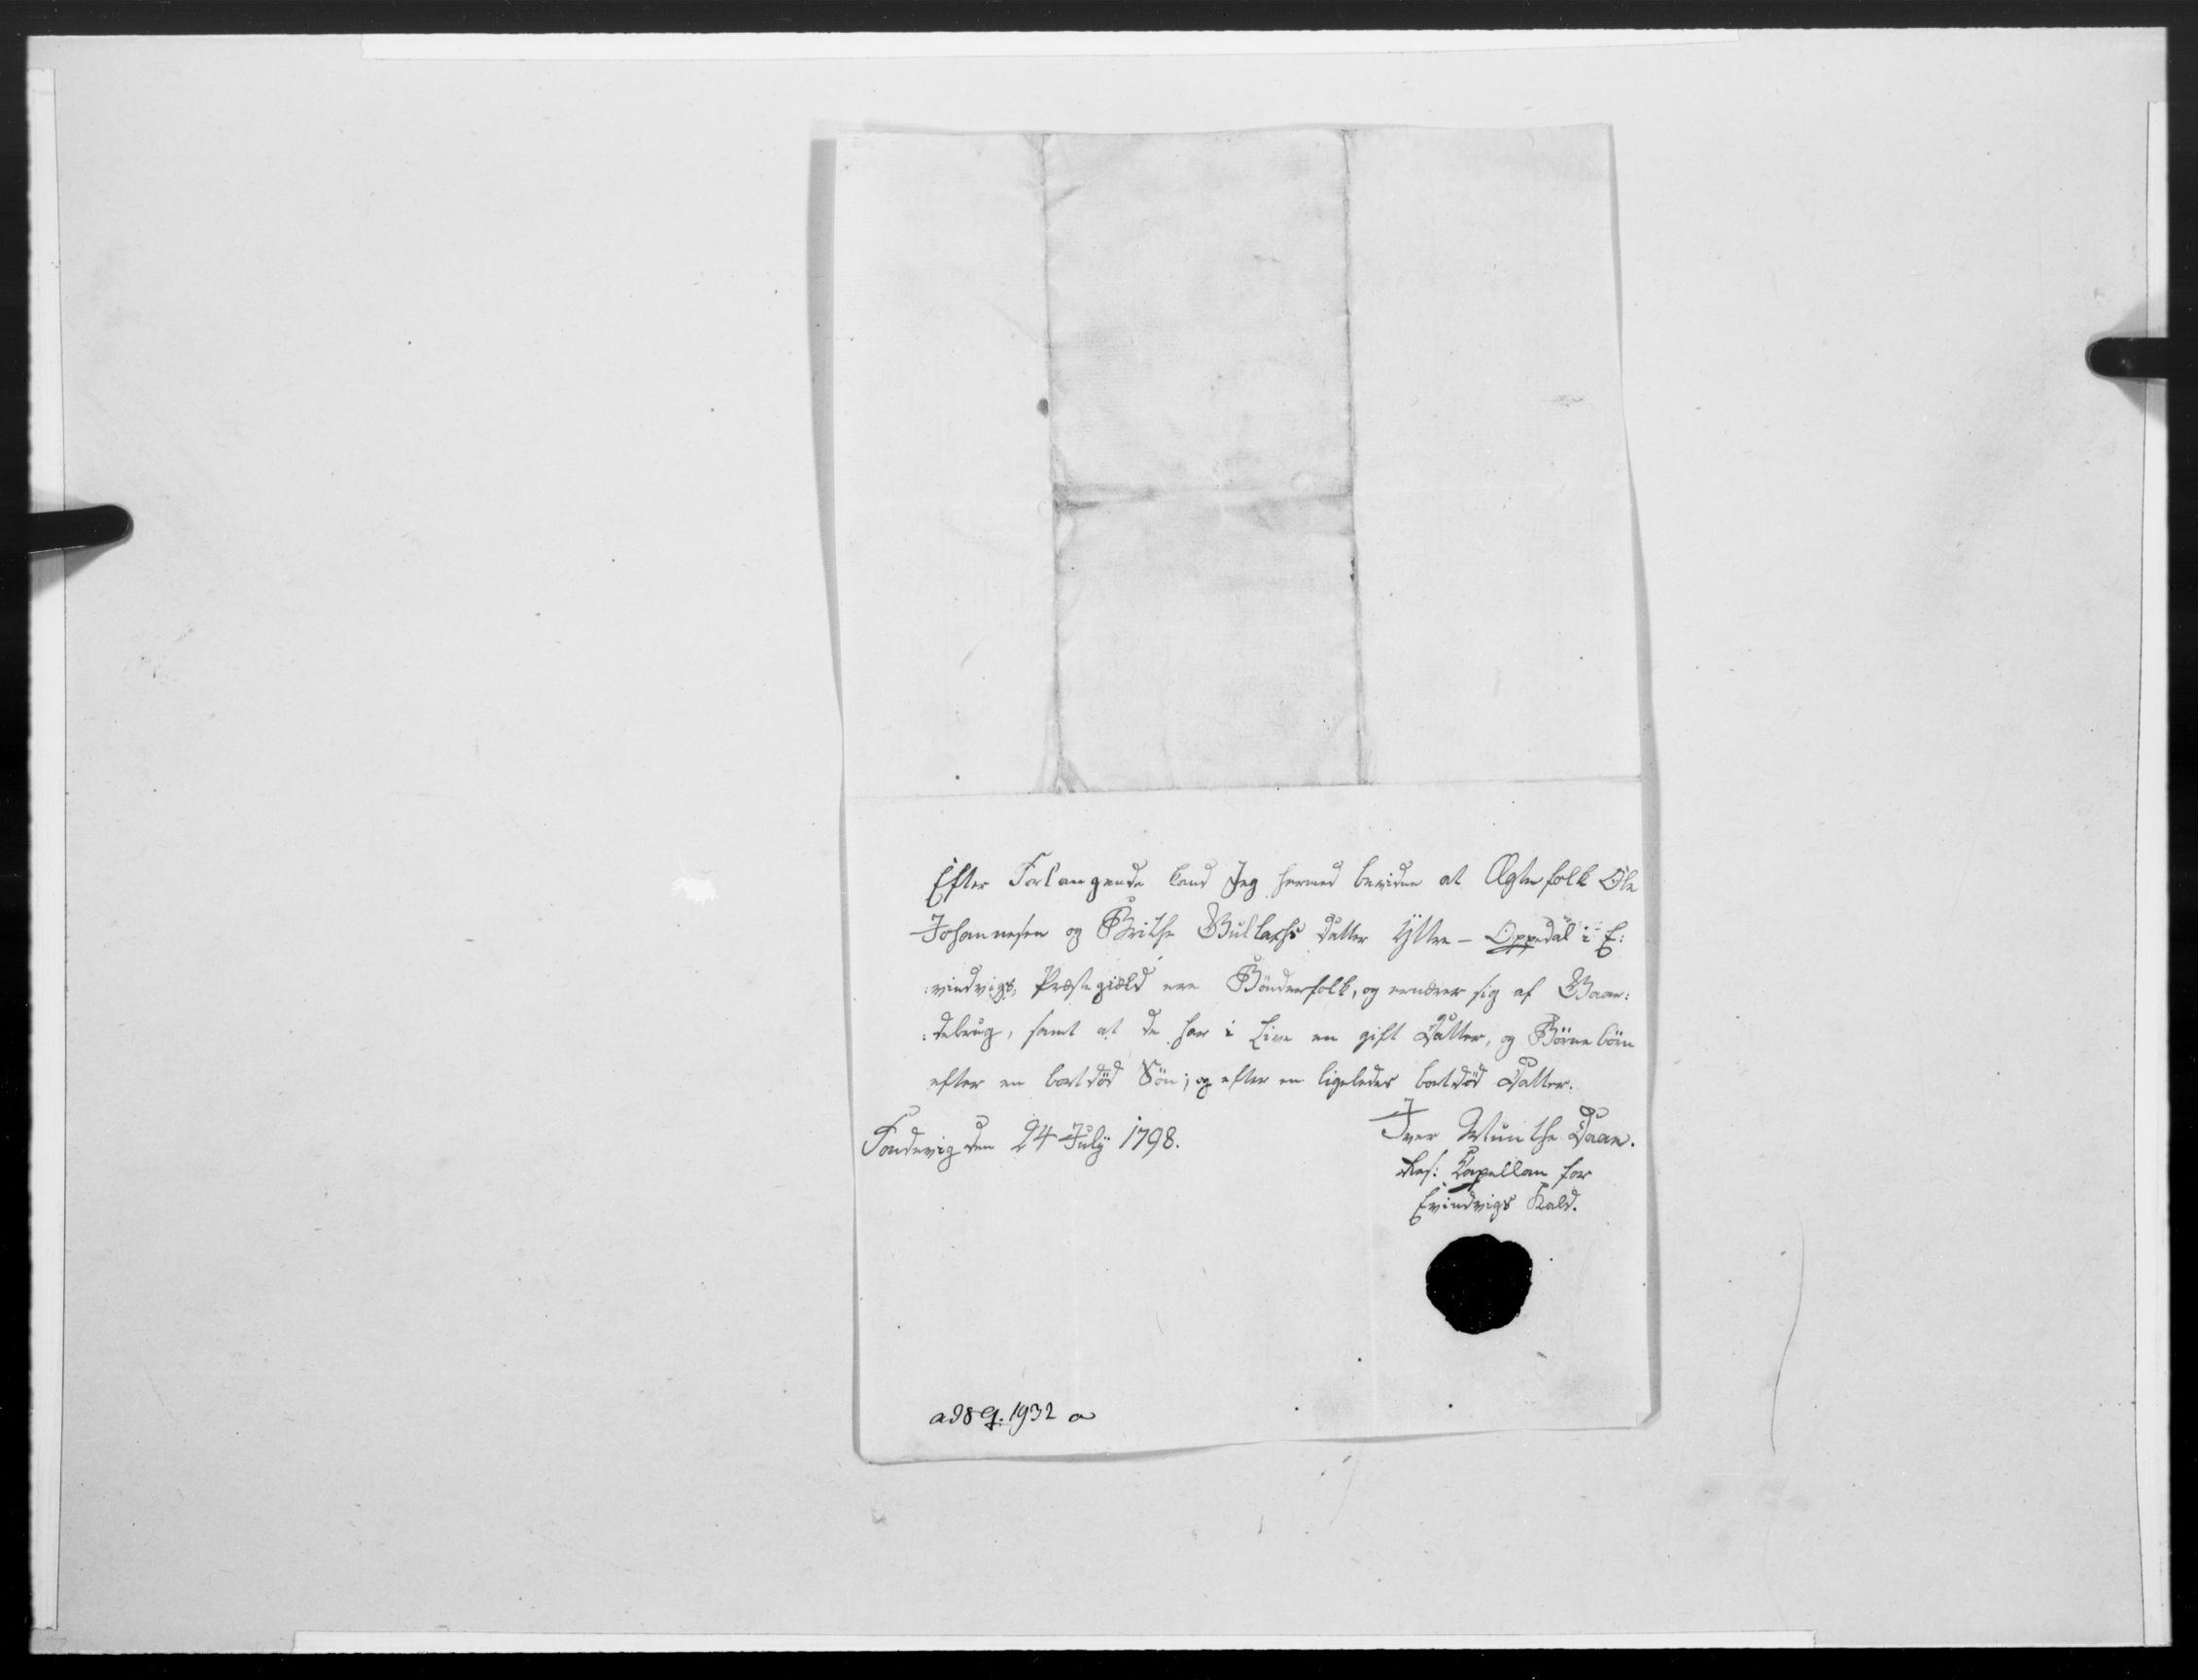 Efter Forlangende kand Jeg hermed bevidne at Ægtefolk Ole
Johannesen og Brithe Gullachs datter Yttre - Oppedal i E:
:vindvigs Præstegield ere Bönderfolk, og ernærer sig af Gaar:
:debrug, samt at de har i Live en gift Datter, og Börnebörn
efter en bortdöd Sön; og efter en ligeledes bortdöd Datter.
den 24 July 1798.
Iver Munthe Daae.
Res: Capellan for
Evindvigs Kald.
ad 8 q. 1932 a